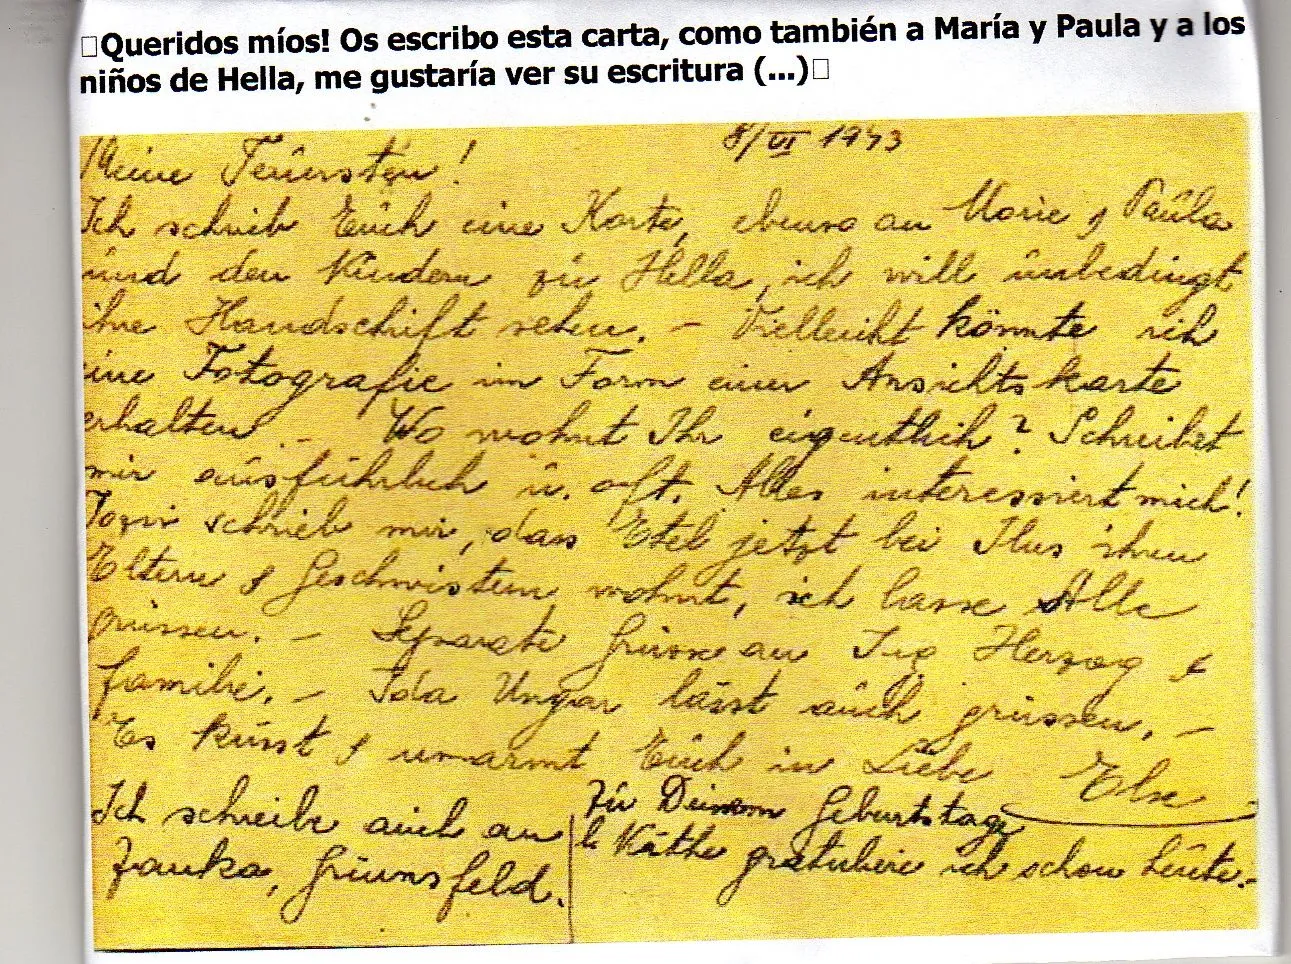 Queridos míos! Os escribo esta carta, como también a María y Paula y a los
niños de Hella, me gustaría ver su escritura (...)
8/VI 1943
Meine Teuersten!
Ich schrieb Euch eine Karte, ebenso an Marie & Paula
und den Kindern zu Hella, ich will unbedingt
ihre Handschrift sehen. – Vielleicht könnte ich
eine Fotografie im Form einer Ansichtskarte
erhalten. – Wo wohnt Ihr eigentlich? Schreibet
mir ausführlich u. oft. Alles interessiert mich!
schrieb mir, dass Etel jetzt bei Ilus ihren
Eltern & Geschwistern wohnt, ich lasse Alle
grüssen. – Separate Grüsse an Ing Herzog &
Familie. – Ida Ungar lässt auch grüssen. –
Es küsst & umarmt Euch in Liebe Else
Ich schreibe auch an
Janka, Grünsfeld.
Zu Deinem Geburtstage
lb Käthe gratuliere ich schon heute. –